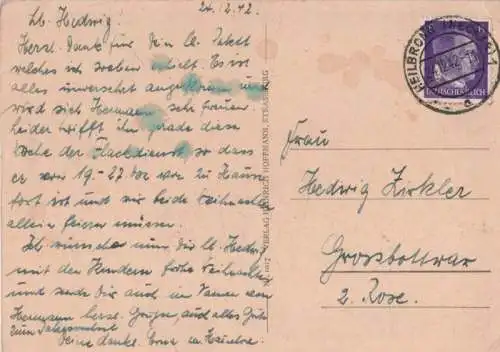 24.12.42.
Lb. Hedwig!
Herzl. Dank für Dein lb. Paket
welches ich soeben erhielt. Es ist
alles unversehrt angekommen und
wird sich Hermann sehr freuen.
Leider trifft ihn grade diese
Woche der Flackdienst, so dass
er vom 19.-27. Dez. von zu Hause
fort ist und wir beide Weihnachten
allein feiern müssen.
Ich wünsche nun Dir lb. Hedwig
mit den Kindern frohe Weihnachten
und sende Dir auch im Namen von
Hermann herzl. Grüsse, auch alles Gute
zum
Deine dankb.
VERLAG HEINRICH HOFFMANN, STRASSBURG
HEILBRONN (NECKAR) 1
DEUTSCHES REICH
a
Frau
Hedwig Zirkler
Grossbottwar
z. Rose.